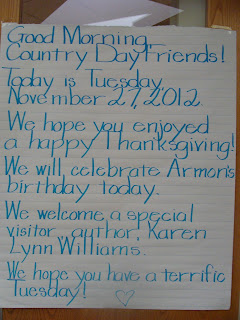 Good Morning,
Country Day Friends!
Today is Tuesday,
November 27, 2012.
We hope you enjoyed
a happy Thanksgiving!
We will celebrate Armon's
birthday today.
We welcome a special
visitor, author, Karen
Lynn Williams.
We hope you have a terrific
Tuesday!